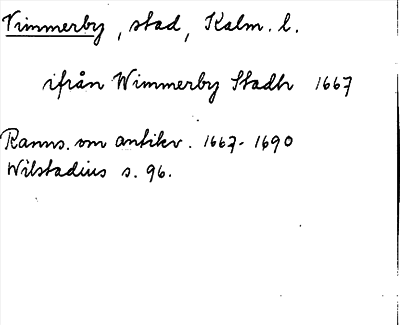 Vimmerby, stad, Kalm. l.
ifrån Wimmerby Stadh 1667
Ranns. om antikv. 1667-1690
Wilstadius s. 96.